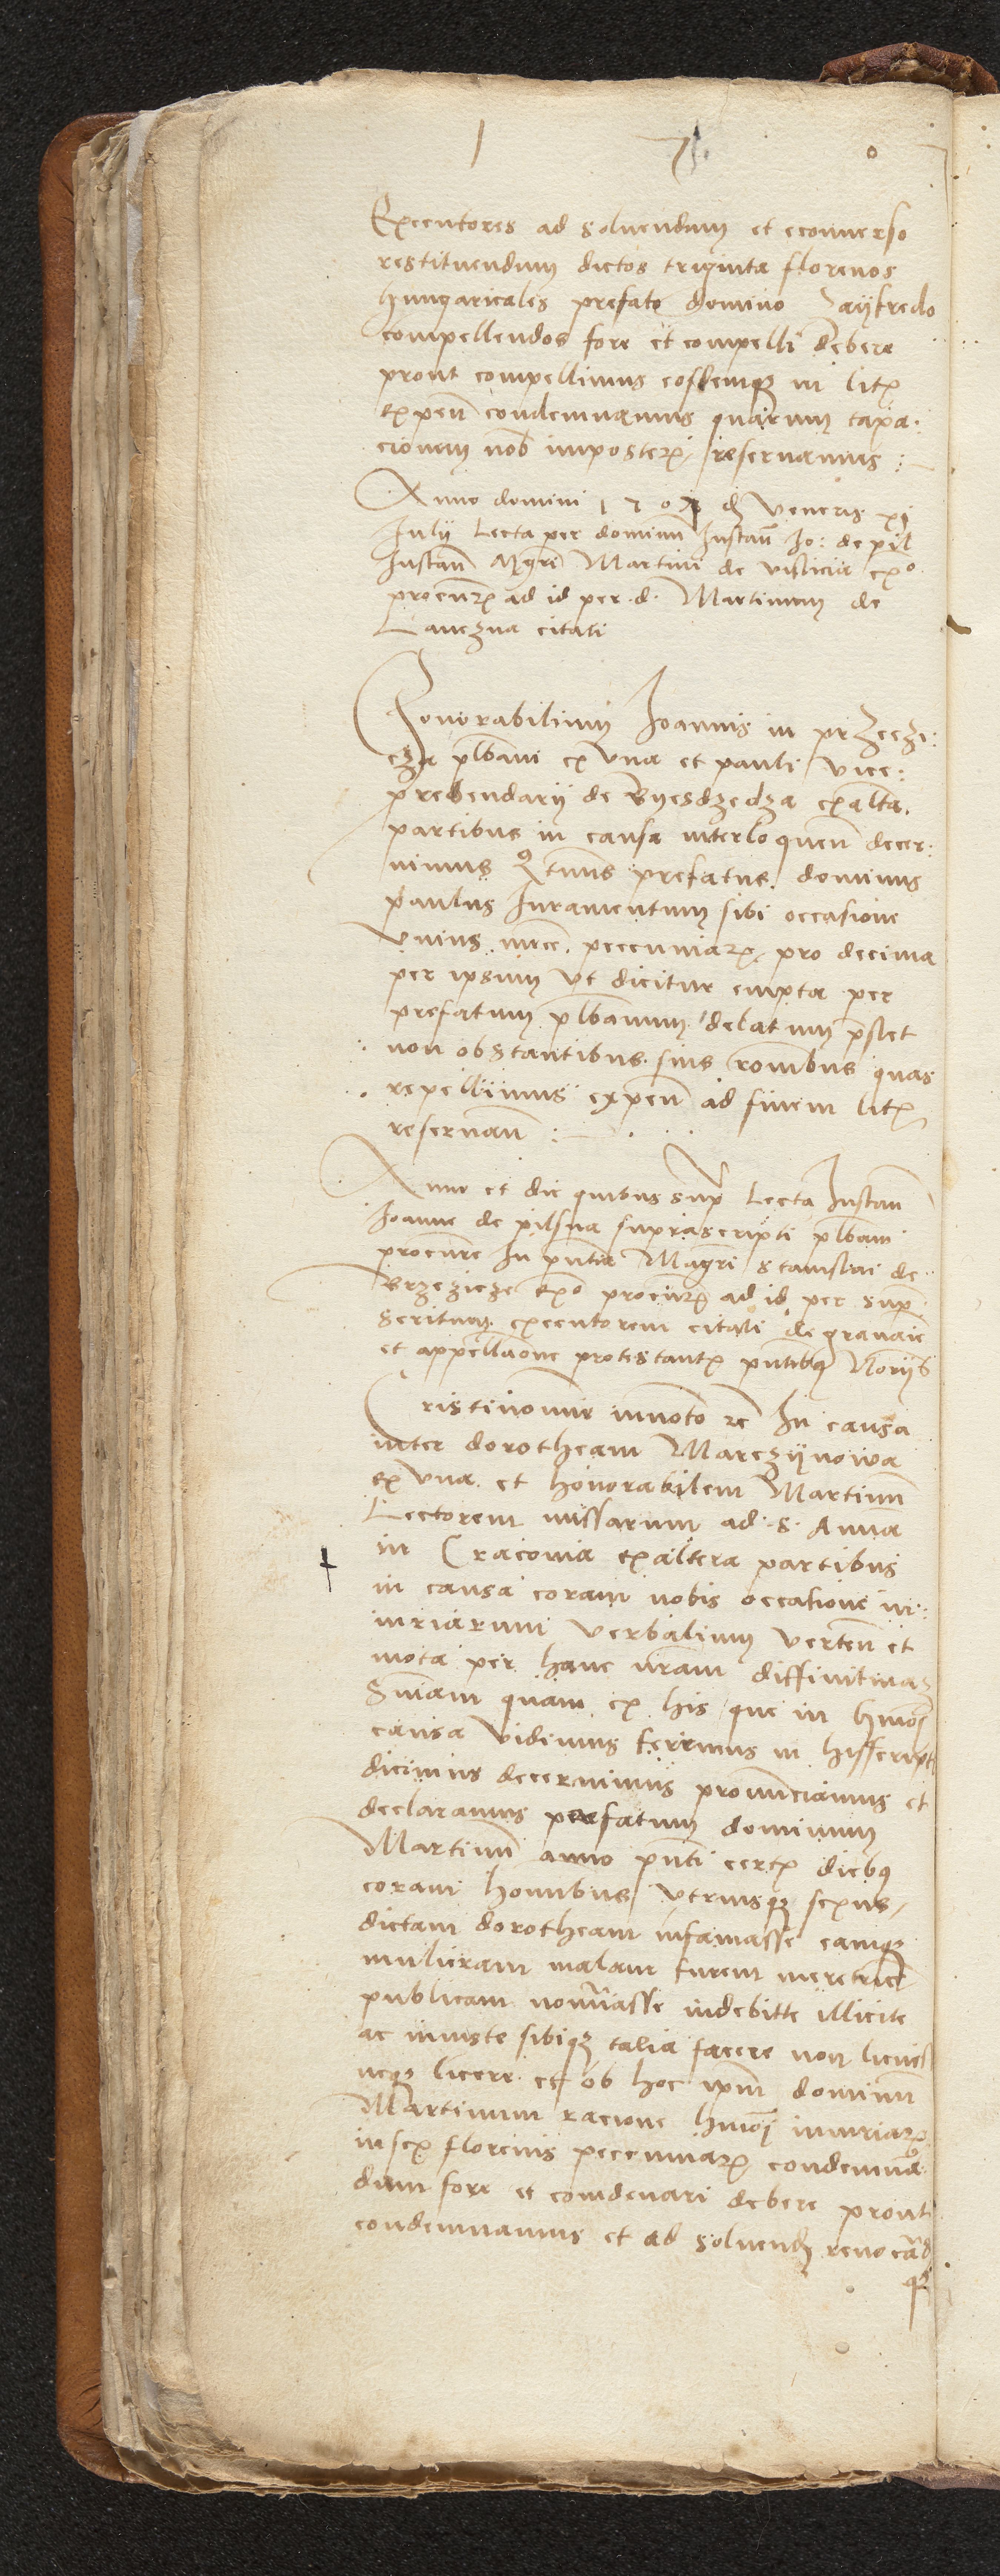 1 7 0
Executores ad soluendum et econuerso
restituendum dictos triginta florenos
hungaricales prefato domino Zayfredo
compellendos fore et compelli debere
prout compellimus eosdemq3 in lit
expen̄ condemnamus quarum taxa:
cionem nob imposter reseruamus :
Anno domini 1 5 0 d Veneris xj
Julij Lecta per dominu Instan̄ Jo: de pil
Instan̄ Mgri Martini de vislicia exo
procur ad id per d. Martinum de
Lanczna citati
Honorabilium Joannis in przeczi:
cza plbani ex vna et pauli vice:
prebendarij de Byesdzedza ex alta.
partibus in causa interloquen̄ decer:
nimus Qtnus prefatus dominus
paulus Juramentum sibi occasione
vnius mrce. pecuniar pro decima
per ipsum vt dicitur empta per
prefatum plbanum delatum pstet
non obstantibus suis ronibus quas
repellimus expen̄ ad finem lit
reseruan̄ :
Anno et die quibus sup Lecta Instan̄
Joanne de pilsna suprascripti plbani
procure In pntia Magri Stanislai de
Brzezicze exo procur ad id per sup
scriptum executorem citati de grauaie
et appellaone protestant pntibq Noriis
Cristinomie innoto rc In causa
inter dorotheam Marczijnowa
ex vna et honorabilem Martinu
Lectorem missarum ad S Annā
in Craconia ex altera partibus
in causa coram nobis occasione in:
iuriarum verbalium verten̄ et
mota per hanc nram diffinitiua
Sniam quam ex his que in hmoi
causa vidimus ferimus in hisscript
dicimus decernimus pronunciamus et
declaramus prefatum dominum
Martinu anno pnti cert diebq
coram homibus vtriusq3 sexus
dictam dorotheam infamasse eamq3
mulieram malam furem meretricē
publicam nominasse indebitte illicite
ac iniuste sibiq3 talia facere non licuis
neq3 licere et ob hoc ipm dominu
Martinum racione hmoi iniuriar
in sex florenis pecuniar condemnā
dum fore et comdenari debere prout
condemnamus et ad soluend reuocād
q3